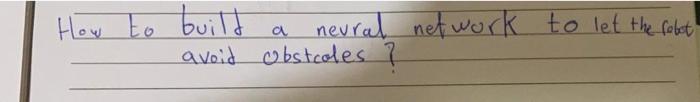 How to build a neural network to let the robot
avoid obstcales ?